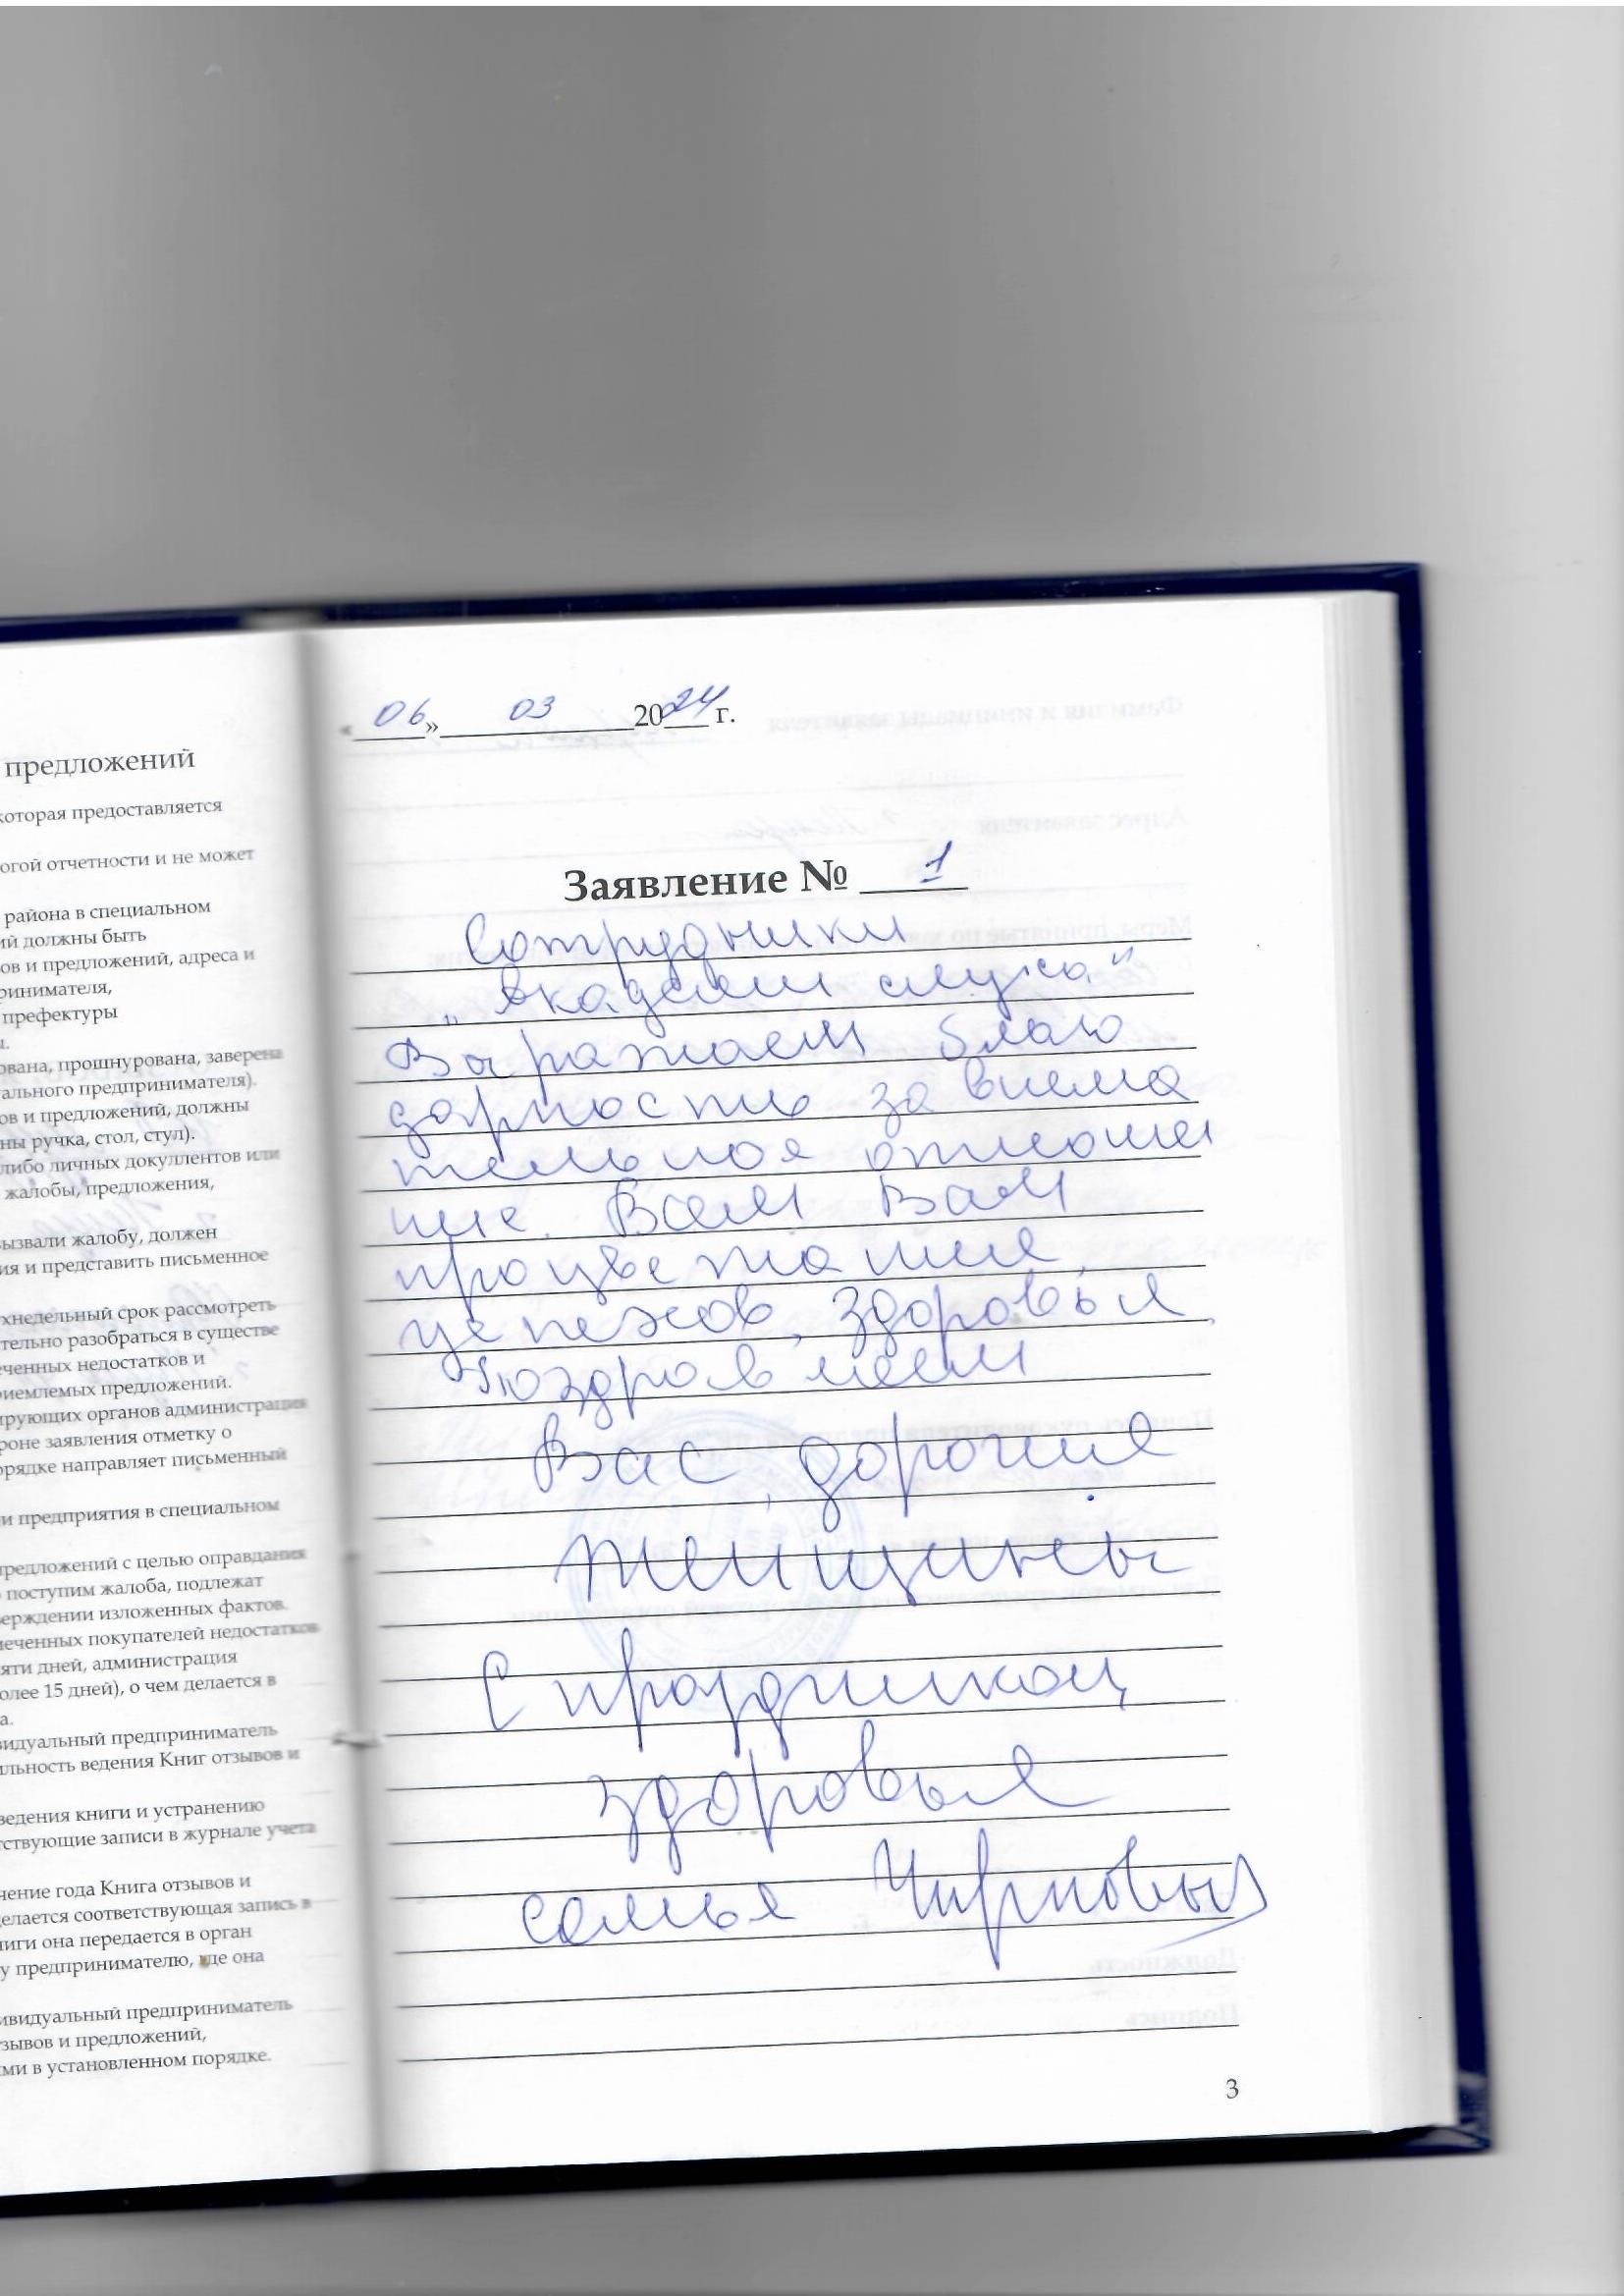 предложений
которая предоставляется
огой отчетности и не может
района в специальном
ий должны быть
ов и предложений, адреса и
ринимателя,
префектуры
ы.
ована, прошнурована, заверена
ального предпринимателя).
ов и предложений, должны
ны ручка, стол, стул).
либо личных докуллентов или
жалобы, предложения,
вызвали жалобу, должен
ия и представить письменное
хнедельный срок рассмотреть
тельно разобраться в существе
еченных недостатков и
риемлемых предложений.
ирующих органов администрация
роне заявления отметку о
орядке направляет письменный
и предприятия в специальном
предложений с целью оправдания
о поступим жалоба, подлежат
верждении изложенных фактов.
меченных покупателей недостатков
яти дней, администрация
олее 15 дней), о чем делается в
а.
видуальный предприниматель
ильность ведения Книг отзывов и
ведения книги и устранению
тствующие записи в журнале учета
чение года Книга отзывов и
делается соответствующая запись в
ниги она передается в орган
у предпринимателю, где она
ивидуальный предприниматель
тзывов и предложений,
ми в установленном порядке.
«06» 03 2024 г.
Заявление № 1
Сотрудники
„Академии слуха"
Выражаем благо
дарность за внима
тельное отноше
ние. Всем Вам
процветания,
успехов, здоровья.
Поздравляем
Вас, дорогие
женщины
С праздником,
здоровья
семья
3